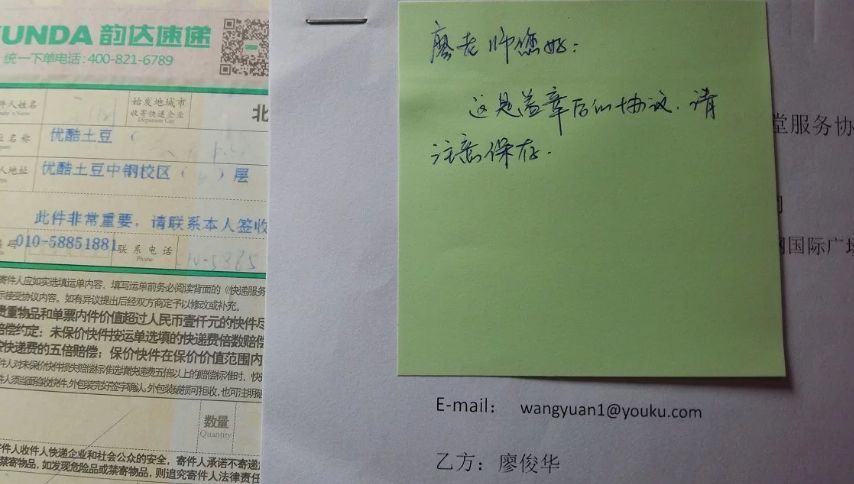 YUNDA 韵达速递
统一下单电话:400-821-6789
件人姓名
始发地城市
收寄快递企业
北
名称
优酷土豆 (
人地址
优酷土豆中钢校区( )层
此件非常重要,请联系本人签收
010-58851881
联系电话
Phone
寄件人应如实选填运单内容、填写运单前务必阅读背面的《快递服务
示接受协议内容。如有异议提出后经双方商定予以修改或补充。
贵重物品和单票内件价值超过人民币壹仟元的快件尽
赔偿约定:未保价快件按运单选填的快递费倍数赔偿
快递费的五倍赔偿;保价快件在保价价值范围内
数量
Quantity
寄件人收件人快递企业和社会公众的安全,寄件人承诺不寄递
禁寄物品,如发现危险品或禁寄物品,则追究寄件人法律责任
廖老师您好:
这是盖章后的协议.请
注意保存.
堂服务协
国际广场
E-mail: wangyuan1@youku.com
乙方:廖俊华